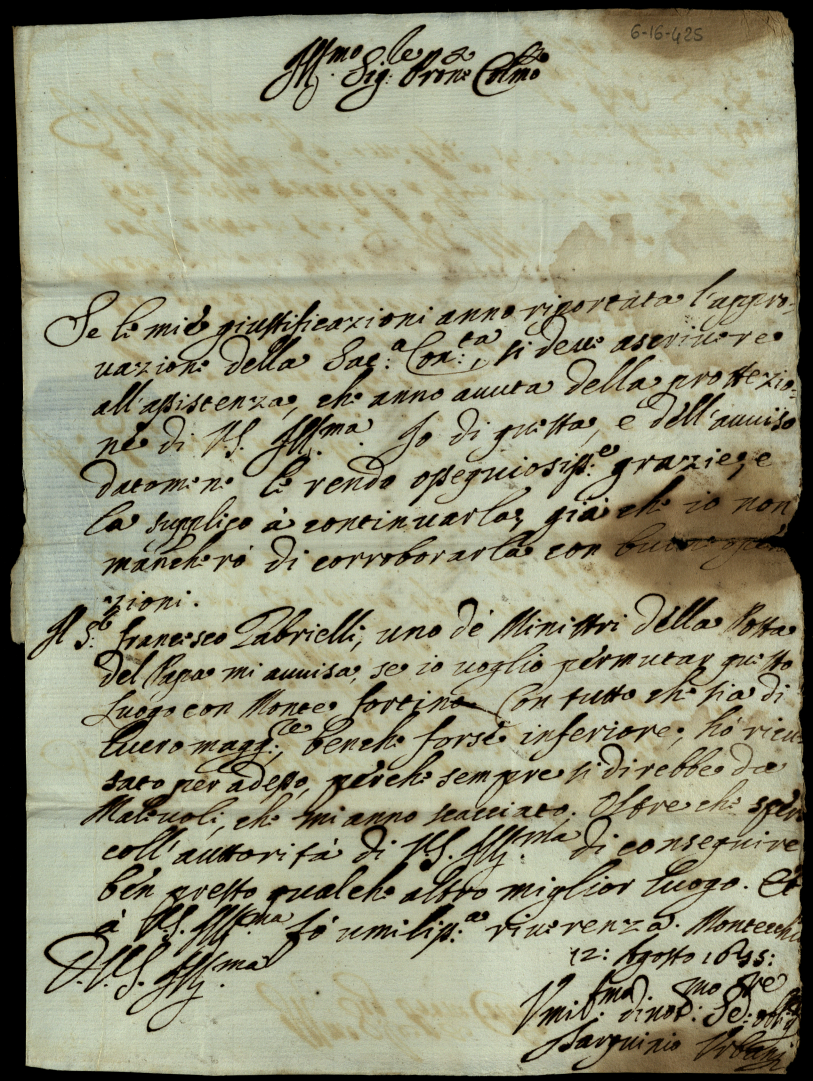 6-16-425
Ill.mo Sig.re Pron.e Colmo
Se le mie giustificazioni anno riportata l'appro-
uazione della Sac.a Con.ta, si deue ascriuere
all'assistenza, che anno auuta della protezio-
ne di V.S. Ill.ma. Io di questa, e dell'auuiso
datomene le rendo ossequiosiss.e grazie, e
la supplico à continuarla, già che io non
mancherò di corroborarla con buone
zioni.
Il S.r Francesco Gabrielli, uno de Ministri della Posta
del Papa mi auuisa, se io uoglio permutar questo
Luogo con Monte fortino. Con tutto che sia di
lucro magg.re, benche forse inferiore, hò ricu
sato per adesso, perche sempre si direbbe da
Maleuoli, che mi anno scacciato. Oltre che spero
coll'auttorità di V.S. Ill.ma di conseguire
ben presto qualche altro miglior luogo. Et
à V.S. Ill.ma fò umiliss.a riuerenza. Montecchio
12: Agosto 1655:
D. V.S. Ill.ma
Vmil.mo diuot.mo Se.re obblig
Tarquinio Vrbani